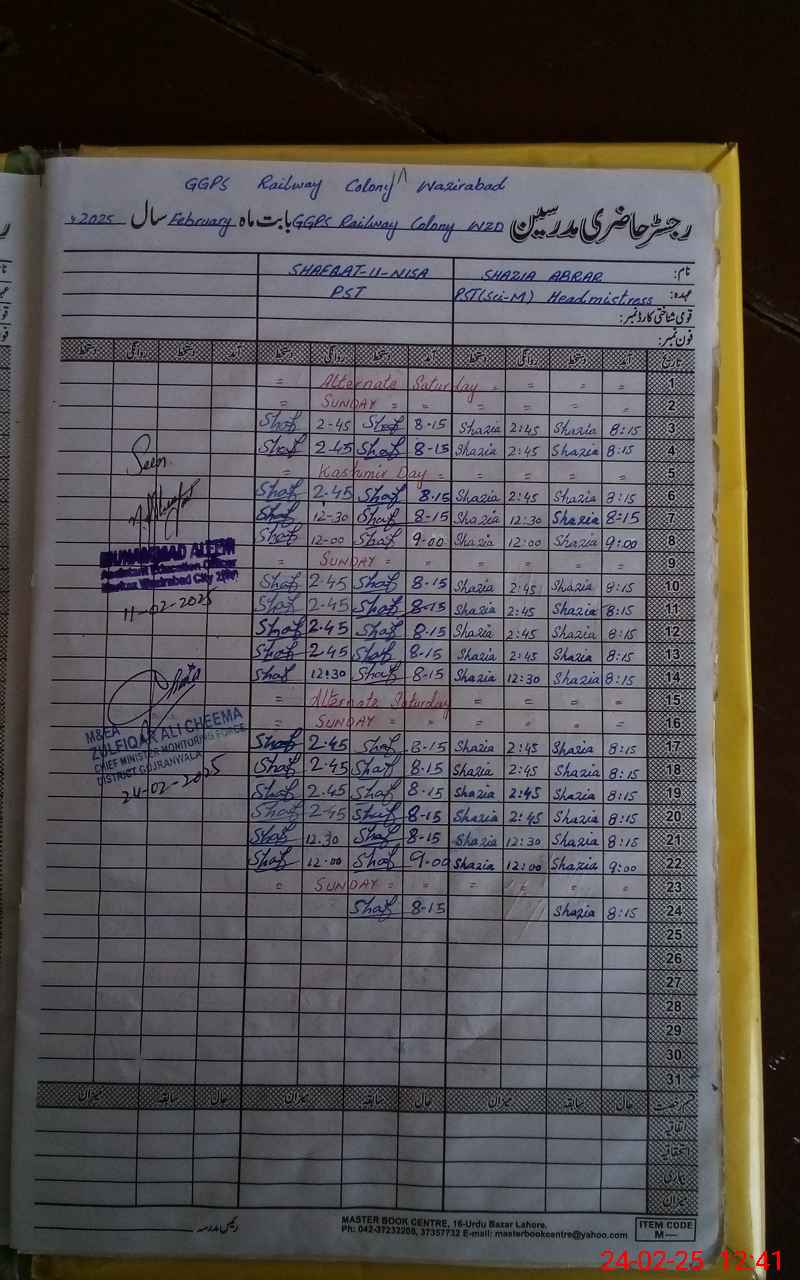 GGPS Railway Colony Wazirabad
رجسٹر حاضری مدرسین GGPS Railway Colony WZD بابت ماہ February سال 2025ء
نام: SHAZIA ABRAR SHAFQAT-U-NISA
عہدہ: PST(Sci-M) Headmistress PST
قومی شناختی کارڈ نمبر:
فون نمبر:
تاریخ آمد دستخط روانگی دستخط آمد دستخط روانگی دستخط آمد دستخط روانگی دستخط
1 = = = = Alternate Saturday =
2 = = = = = = SUNDAY =
3 8:15 Shazia 2:45 Shazia 8-15 Shaf 2-45 Shaf
4 8:15 Shazia 2:45 Shazia 8-15 Shaf 2-45 Shaf
5 = = = = = Kashmir Day =
6 8:15 Shazia 2:45 Shazia 8.15 Shaf 2.45 Shaf
7 8:15 Shazia 12:30 Shazia 8-15 Shaf 12-30 Shaf
8 9:00 Shazia 12:00 Shazia 9-00 Shaf 12-00 Shaf
9 = = = = = = SUNDAY =
10 8:15 Shazia 2:45 Shazia 8-15 Shaf 2-45 Shaf
11 8:15 Shazia 2:45 Shazia 8-15 Shaf 2-45 Shaf
12 8:15 Shazia 2:45 Shazia 8-15 Shaf 2-45 Shaf
13 8:15 Shazia 2:45 Shazia 8-15 Shaf 2.45 Shaf
14 8:15 Shazia 12:30 Shazia 8-15 Shaf 12:30 Shaf
15 = = = = Alternate Saturday =
16 = = = = = = SUNDAY =
17 8:15 Shazia 2:45 Shazia 8-15 Shaf 2.45 Shaf
18 8:15 Shazia 2:45 Shazia 8.15 Shaf 2.45 Shaf
19 8:15 Shazia 2:45 Shazia 8.15 Shaf 2.45 Shaf
20 8:15 Shazia 2:45 Shazia 8-15 Shaf 2-45 Shaf
21 8:15 Shazia 12:30 Shazia 8-15 Shaf 12.30 Shaf
22 9:00 Shazia 12:00 Shazia 9.00 Shaf 12.00 Shaf
23 = = = = = = SUNDAY =
24 8:15 Shazia 8-15 Shaf
25
26
27
28
29
30
31
Seen
MUHAMMAD ALEEM
Assistant Education Officer
Markaz Wazirabad City
11-02-2025
M&EA
ZULFIQAR ALI CHEEMA
CHIEF MINISTER MONITORING FORCE
DISTRICT GUJRANWALA
24-02-2025
قسم رخصت حال سابقہ میزان حال سابقہ میزان حال سابقہ میزان
اتفاقیہ
استحقاقیہ
بیماری
میزان
رئیس مدرسہ
MASTER BOOK CENTRE, 16-Urdu Bazar Lahore.
Ph: 042-37232208, 37357732 E-mail: masterbookcentre@yahoo.com
ITEM CODE
M—
24-02-25 12:41